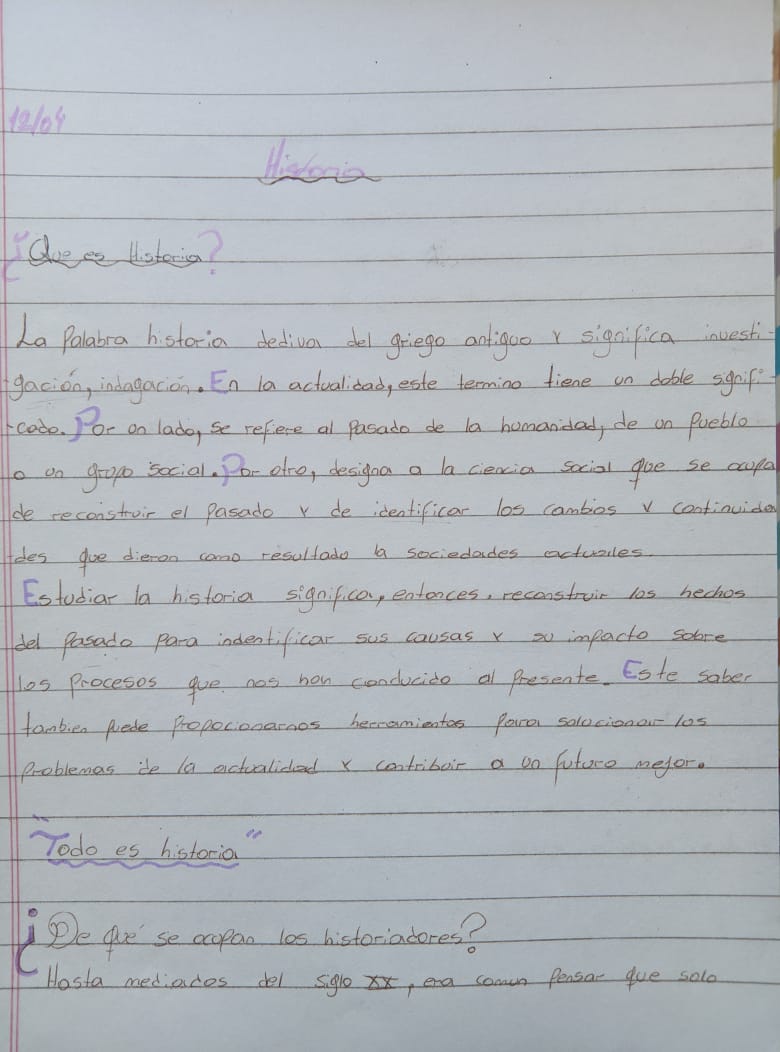 12/04
Historia
¿Que es Historia?
La Palabra historia dediva del griego antiguo y significa investi-
gación, indagación. En la actualidad, este termino tiene un doble signifi-
cado. Por un lado, se refiere al Pasado de la humanidad, de un Pueblo
o un grupo social. Por otro, designa a la ciencia social que se ocupa
de reconstruir el Pasado y de identificar los cambios y continuida
des que dieron como resultado la sociedades actuales.
Estudiar la historia significa, entonces, reconstruir los hechos
del Pasado Para indentificar sus causas y su impacto sobre
los Procesos que nos han conducido al Presente. Este saber
tambien Puede Propocionarnos herramientas Para solucionar los
Problemas de la actualidad y contribuir a un futuro mejor.
"Todo es historia"
¿De qué se ocupan los historiadores?
Hasta mediados del siglo XX, era comun Pensar que solo